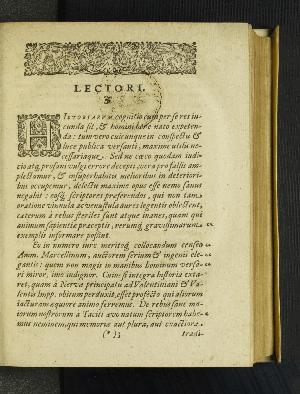 LECTORI.
HISTORIARUM cognitio cum per se res iu-
cunda sit, & homini bono nato expeten-
da: tum vero cuicunque in conspectu &
luce publica versanti, maxime utilis ne-
cessariaque. Sed ne cæco quodam iudi-
cio atq; profani vulgi errore decepti, vera pro falsis am-
plectamur, & insuper habitis melioribus in deteriori-
bus occupemur, delectu maxime opus esse nemo sanus
negabit: eosq; scriptores præferendos, qui non tam
oratione vinnula ac venustula aures legentis oblectent,
cæterum à rebus steriles sunt atque inanes, quam qui
animum sapientiæ præceptis, rerumq; gravissimarum
exemplis informare possint.
Ex in numero iure meritoq; collocandum censeo
Amm. Marcellinum, auctorem serium & ingenii ele-
gantis: quem non magis in manibus hominum versa-
ri miror, imo indignor. Cuius si integra historia exta-
ret, quam à Nerva principatu ad Valentiniani & Va-
lentis Impp. obitum perduxit, esset profecto qui aliorum
iacturam æquiore animo ferremus. De rebus Romano-
rum nostrorum à Taciti ævo natum scriptorem habe-
mus neminem, qui memoriæ aut plura, aut exactiora
(*) 3
tradi-